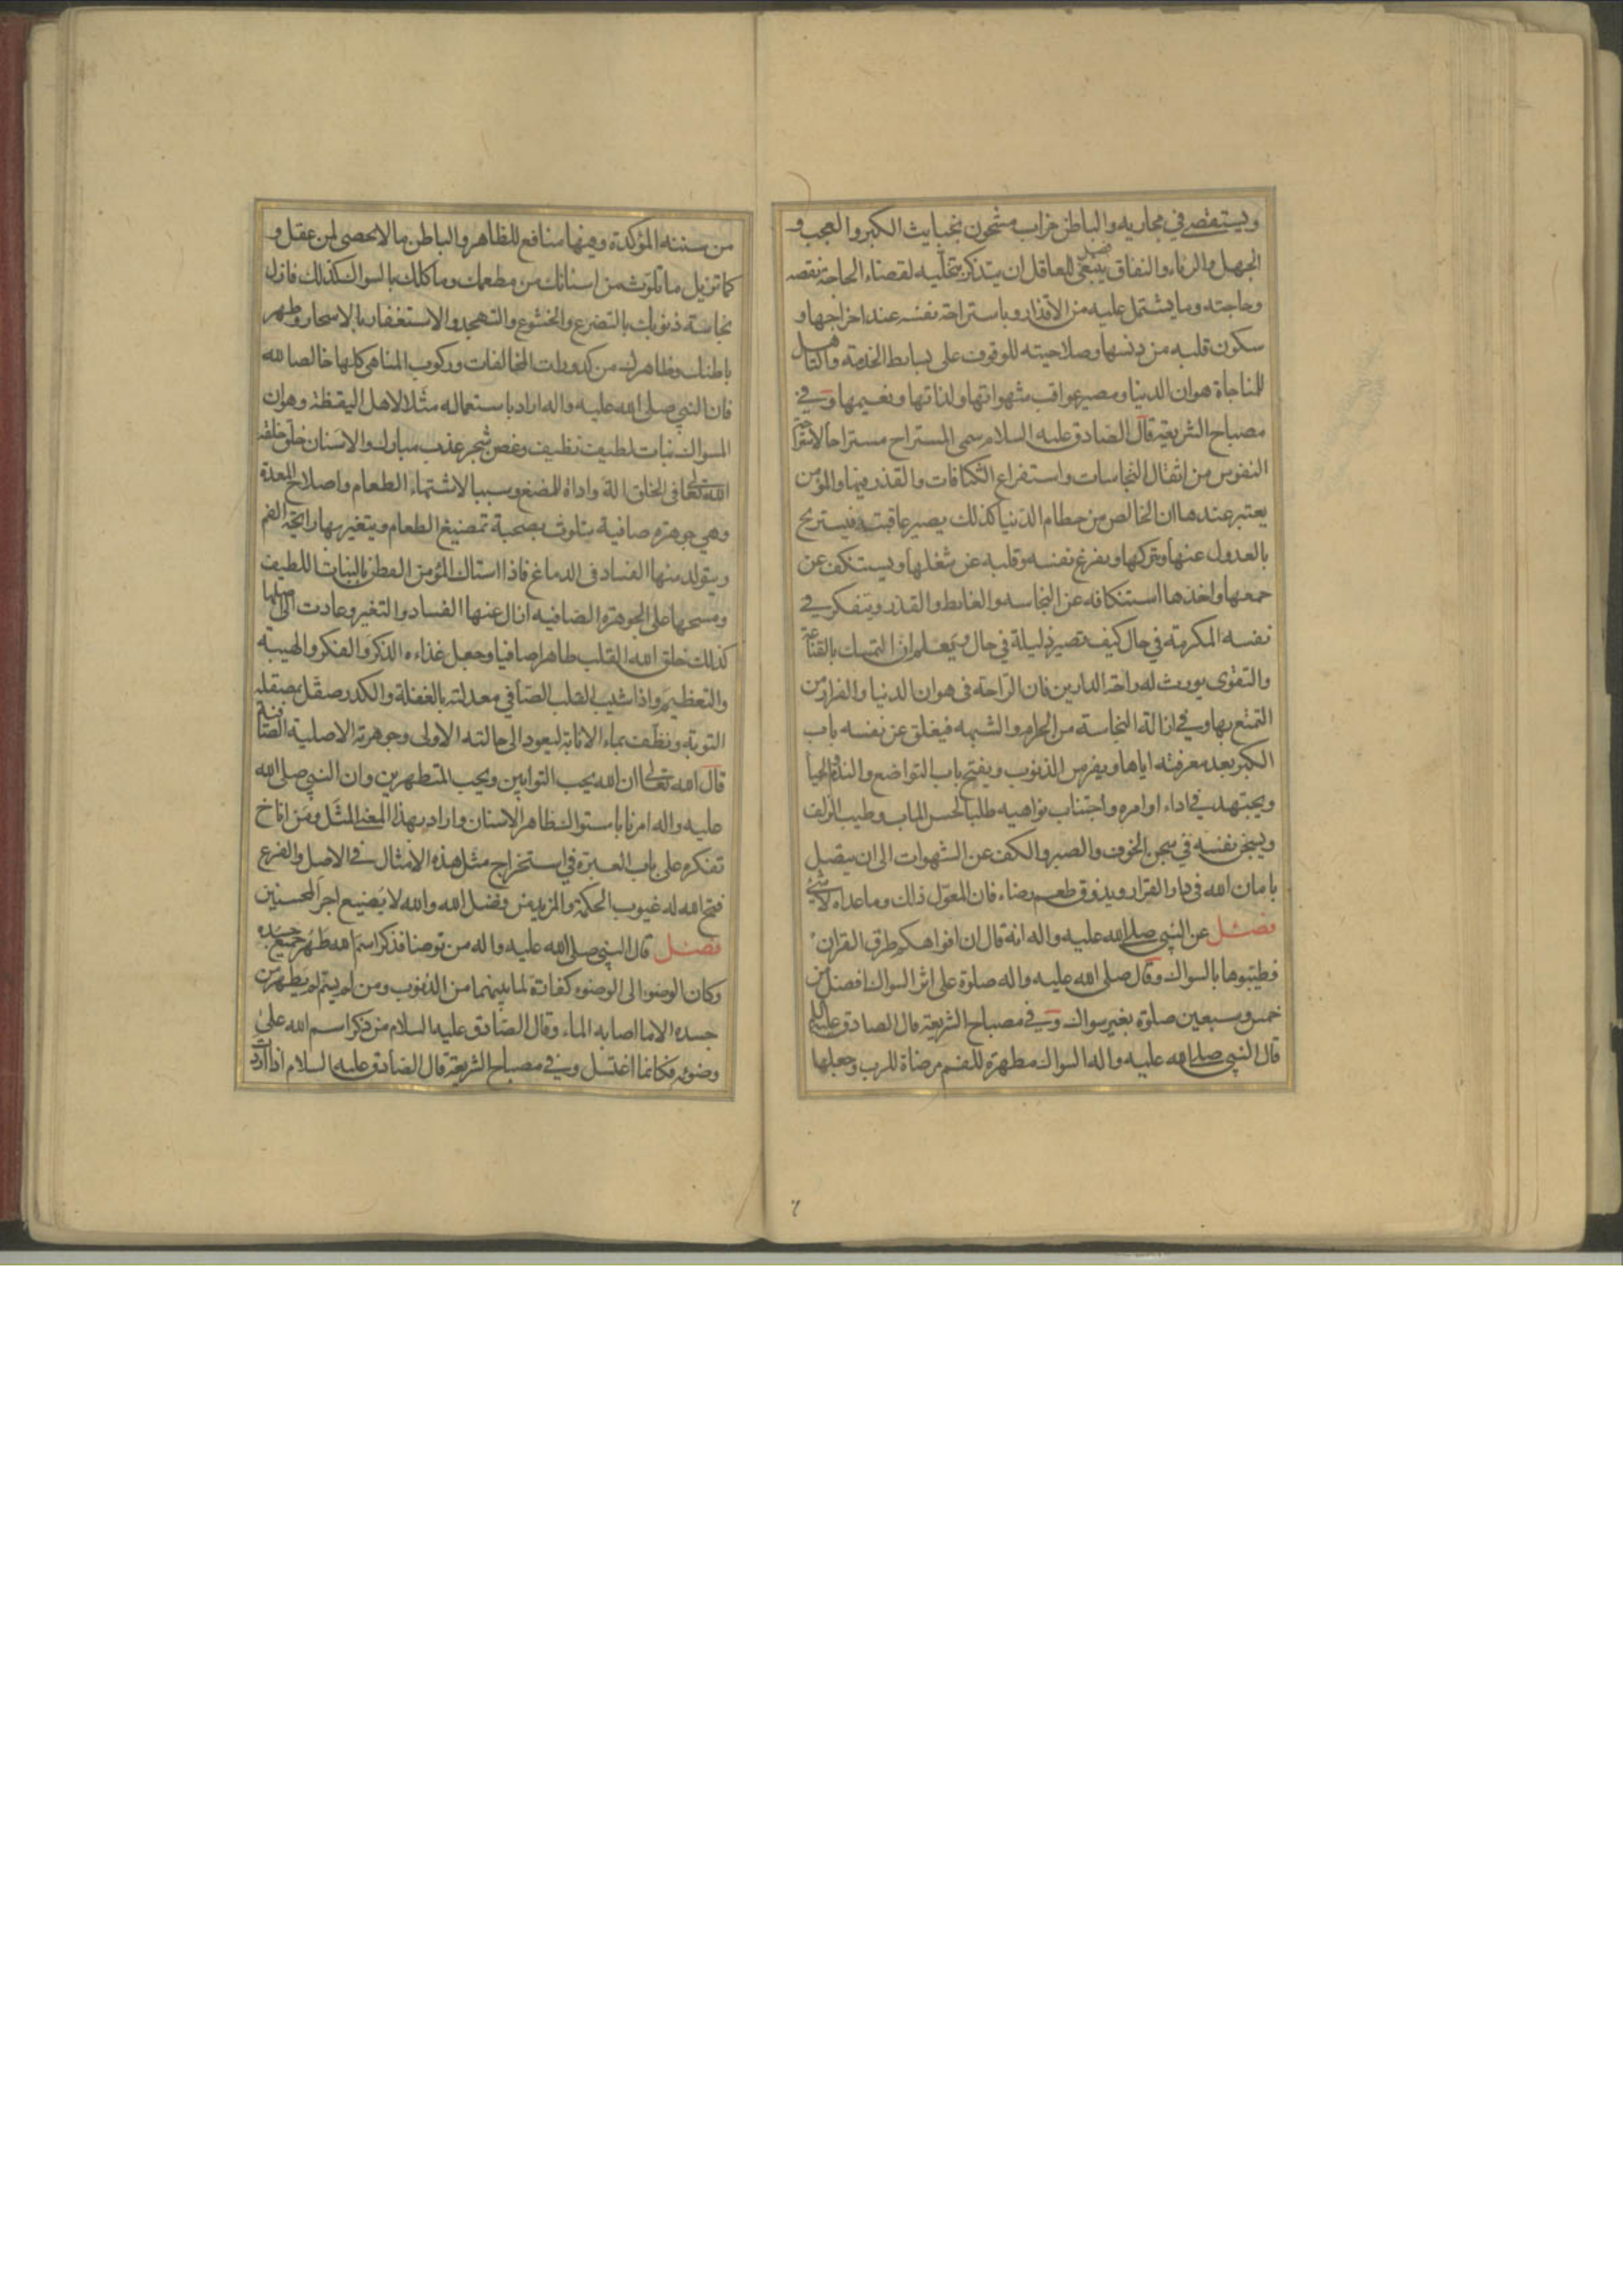 ويستقصي في مجاريه والباطن خراب مشحون بخبايث الكبر والعجب و
الجهل والرياء والنفاق فصل ينبغي للعاقل ان يتذكر بتخليه لقضاء الحاجة نقصه
وحاجته وما يشتمل عليه من الاقذار وباستراحة نفسه عند اخراجها و
سكون قلبه من دنسها وصلاحيته للوقوف على بساط الخدمة والتاهل
للمناجاة هوان الدنيا ومصير عواقب شهواتها ولذاتها ونعيمها وفي
مصباح الشريعة قال الصادق عليه السلام سمي المستراح مستراحا لاستراحة
النفوس من اثقال النجاسات واستفراغ الكثافات والقذر فيها والمؤمن
يعتبر عندها ان الخالص من حطام الدنيا كذلك يصير عاقبته فيستريح
بالعدول عنها وتركها ويفرغ نفسه وقلبه عن شغلها ويستنكف عن
جمعها واخذها استنكافه عن النجاسه والغايط والقذر ويتفكر في
نفسه المكرمة في حال كيف تصير ذليلة في حال ويعلم ان التمسك بالقناعة
والتقوى يورث له راحة الدارين فان الراحة في هوان الدنيا والفراغ من
التمتع بها وفي ازالة النجاسة من الحرام والشبهه فيغلق عن نفسه باب
الكبر بعد معرفته اياها ويفر من الذنوب ويفتح باب التواضع والندم والحيا
ويجتهد في اداء اوامره واجتناب نواهيه طلبا لحسن الماب وطيب الزلف
ويسجن نفسه في سجن الخوف والصبر والكف عن الشهوات الى ان يتصل
بامان الله في دار القرار ويذوق طعم رضاه فان المعول ذلك وما عداه لا شئ
فصل عن النبي صلى الله عليه واله انه قال ان افواهكم طرق القران
فطيبوها بالسواك وقال صلى الله عليه واله صلوة على اثر السواك افضل من
خمس وسبعين صلوة بغير سواك وفي مصباح الشريعة قال الصادق عليه السلام
قال النبي صلى الله عليه واله السواك مطهرة للفم مرضاة للرب وجعلها
٦
من سننه المؤكدة وفيها منافع للظاهر والباطن ما لا يحصى لمن عقل و
كما تزيل ما تلوث من اسنانك من مطعمك وماكلك بالسواك كذلك فازل
نجاسة ذنوبك بالتضرع والخشوع والتهجد والاستغفار بالاسحار وطهر
باطنك وظاهرك من كدورات المخالفات وركوب المناهي كلها خالصا لله
فان النبي صلى الله عليه واله اراد باستعماله مثلا لاهل اليقظة وهو ان
المسواك نبات لطيف نظيف وغصن شجر عذب مبارك والاسنان خلق خلقه
الله تعالى في الخلق الة واداة للمضغ وسببا لاشتهاء الطعام واصلاح المعدة
وهي جوهرة صافية يتلوث بصحبة تمضيغ الطعام ويتغير بها رايحة الفم
ويتولد منها الفساد في الدماغ فاذا استاك المؤمن الفطن بالنبات اللطيف
ومسحها على الجوهرة الصافيه ازال عنها الفساد والتغير وعادت الى اصلها
كذلك خلق الله القلب طاهرا صافيا وجعل غذاءه الذكر والفكر والهيبة
والتعظيم واذا شيب القلب الصافي معدلته بالغفلة والكدر صقل بصقله
التوبة ونظف بماء الانابة ليعود الى حالته الاولى وجوهرته الاصلية الصافية
قال الله تعالى ان الله يحب التوابين ويحب المتطهرين وان النبي صلى الله
عليه واله امرنا باستواك ظاهر الاسنان واراد بهذا المعنى المثل ومن اناخ
تفكره على باب العبرة في استخراج مثل هذه الامثال في الاصل والفرع
فتح الله له عيون الحكمة والمزيد من فضل الله والله لا يضيع اجر المحسنين
فصل قال النبي صلى الله عليه واله من توضا فذكر اسم الله طهر جميع جسده
وكان الوضوء الى الوضوء كفارة لما بينهما من الذنوب ومن لم يسم لم يطهر من
جسده الا ما اصابه الماء وقال الصادق عليه السلام من ذكر اسم الله على
وضوئه فكانما اغتسل وفي مصباح الشريعة قال الصادق عليه السلام اذا اردت